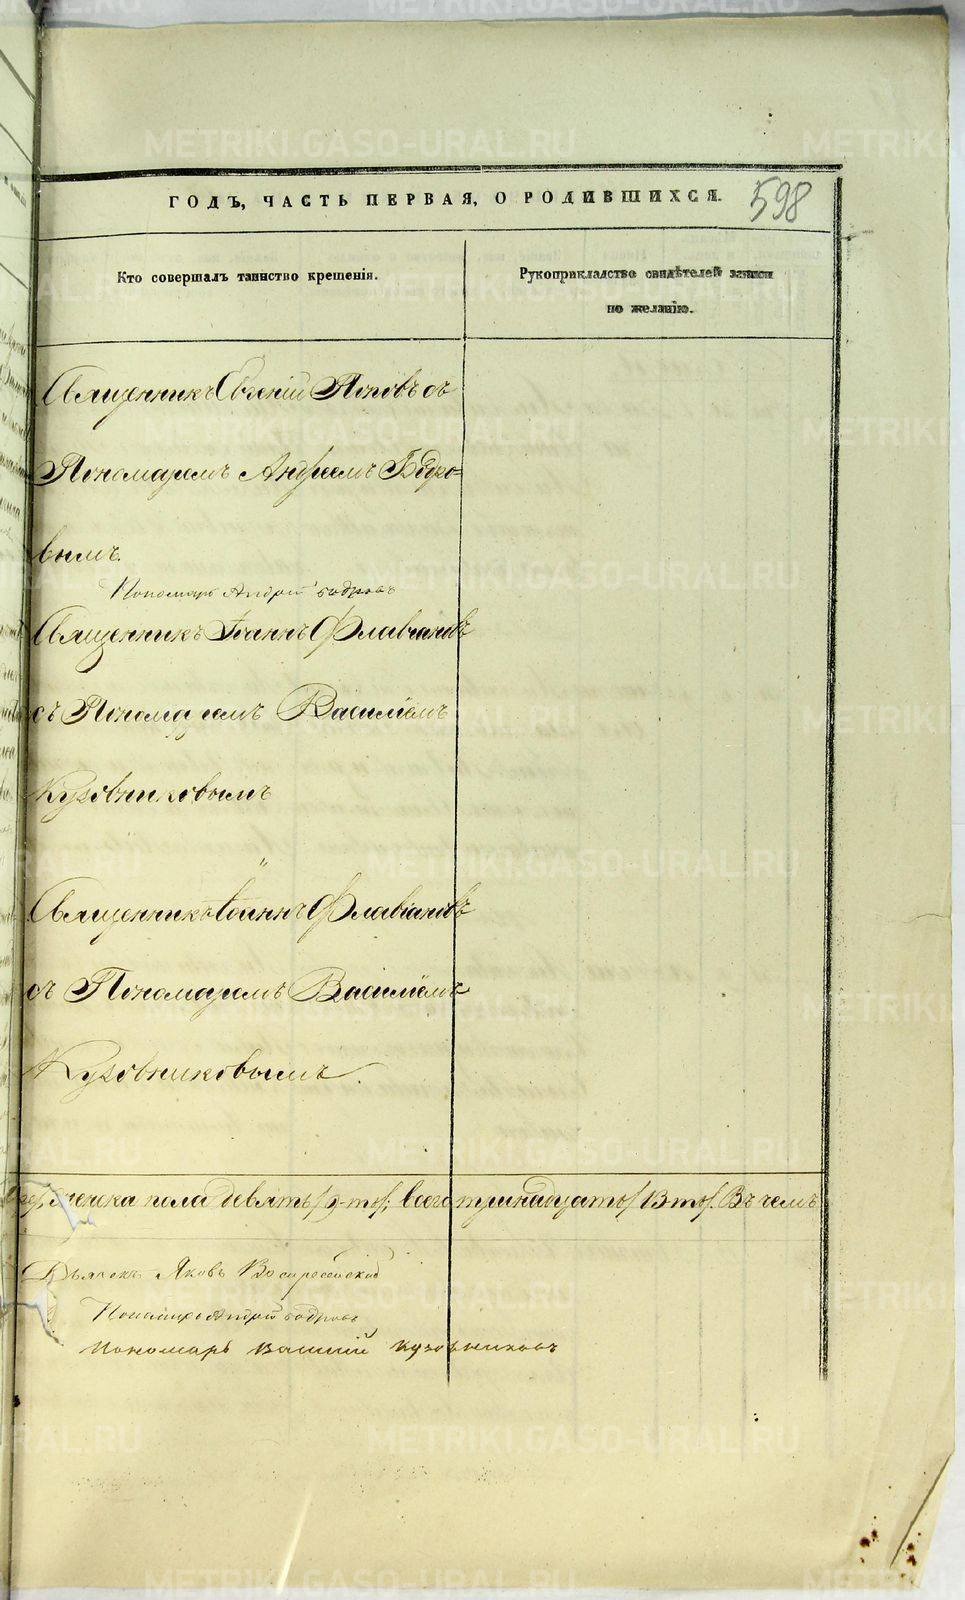 ГОДЪ, ЧАСТЬ ПЕРВАЯ, О РОДИВШИХСЯ. 598
Кто совершалъ таинство крещенія.
Рукоприкладство свидѣтелей записи
по желанію.
Священникъ Евгеній Поповъ съ
Пономаремъ Андреемъ Бодро-
вымъ.
Пономарь Андрей Бодровъ
Священникъ Іоаннъ Флавіановъ
съ Пономаремъ Василіемъ
Кузовниковымъ
Священникъ Іоаннъ Флавіановъ
съ Пономаремъ Василіемъ
Кузовниковымъ.
женска пола девять /9-ть/; всего тринадцать /13 ть/. Въ чемъ
Дьячекъ Яковъ Воскресенскій
Пономарь Андрей Бодровъ
Пономарь Василій Кузовниковъ
METRIKI.GASO-URAL.RU